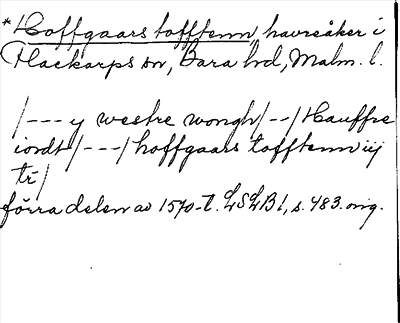 * Hoffgaars tofftenn, havreåker i
Flackarps sn, Bara hd, Malm. l.
/--- y westre wongh/--/Hauffre
iordt/---/hoffgaars tofftenn iij
tr/
förra delen av 1570-t. LSLB1, s. 483. orig.